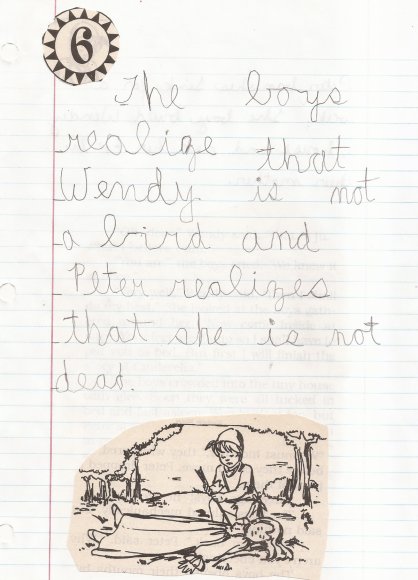 6
The boys
realize that
Wendy is not
a bird and
Peter realizes
that she is not
dead.